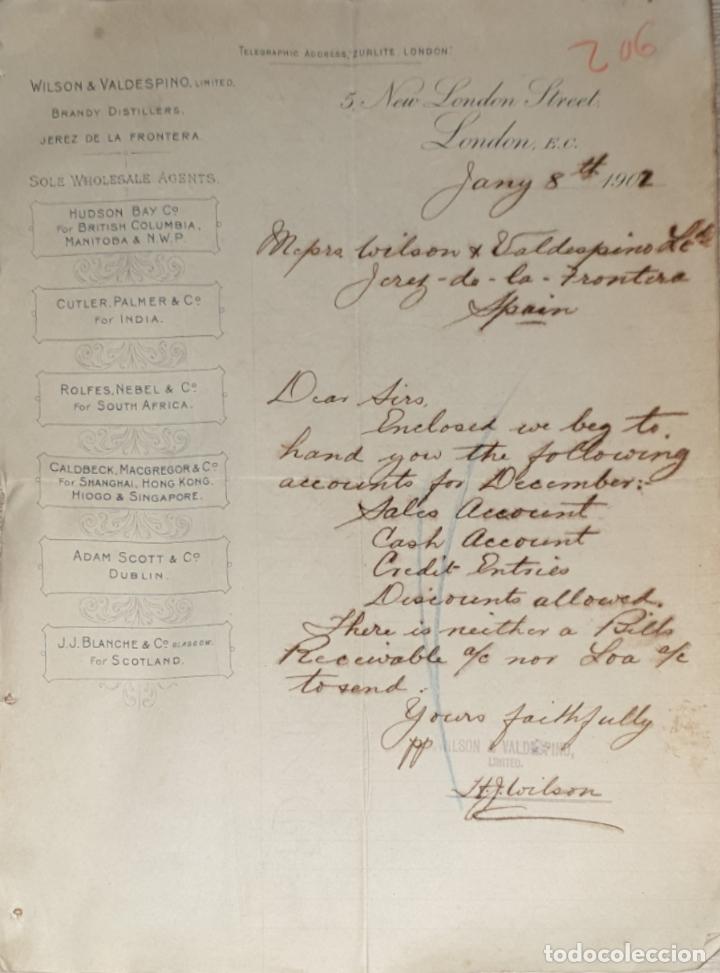 TELEGRAPHIC ADDRESS, "ZURLITE, LONDON."
206
WILSON & VALDESPINO, LIMITED.
BRANDY DISTILLERS,
JEREZ DE LA FRONTERA.
SOLE WHOLESALE AGENTS.
HUDSON BAY Co
FOR BRITISH COLUMBIA,
MANITOBA & N.W.P.
CUTLER, PALMER & Co
FOR INDIA.
ROLFES, NEBEL & Co
FOR SOUTH AFRICA.
CALDBECK, MACGREGOR & Co
FOR SHANGHAI, HONG KONG.
HIOGO & SINGAPORE.
ADAM SCOTT & Co
DUBLIN.
J.J. BLANCHE & Co GLASGOW.
FOR SCOTLAND.
5, New London Street,
London, E.C.
Jany 8th 1902
Messrs Wilson & Valdespino Ld
Jerez-de-la-Frontera
Spain
Dear Sirs,
Enclosed we beg to
hand you the following
accounts for December:-
Sales Account
Cash Account
Credit Entries
Discounts allowed.
There is neither a Bills
Receivable a/c nor Loa a/c
to send.
Yours faithfully
pp. WILSON & VALDESPINO,
LIMITED.
H.J. Wilson
todocoleccion